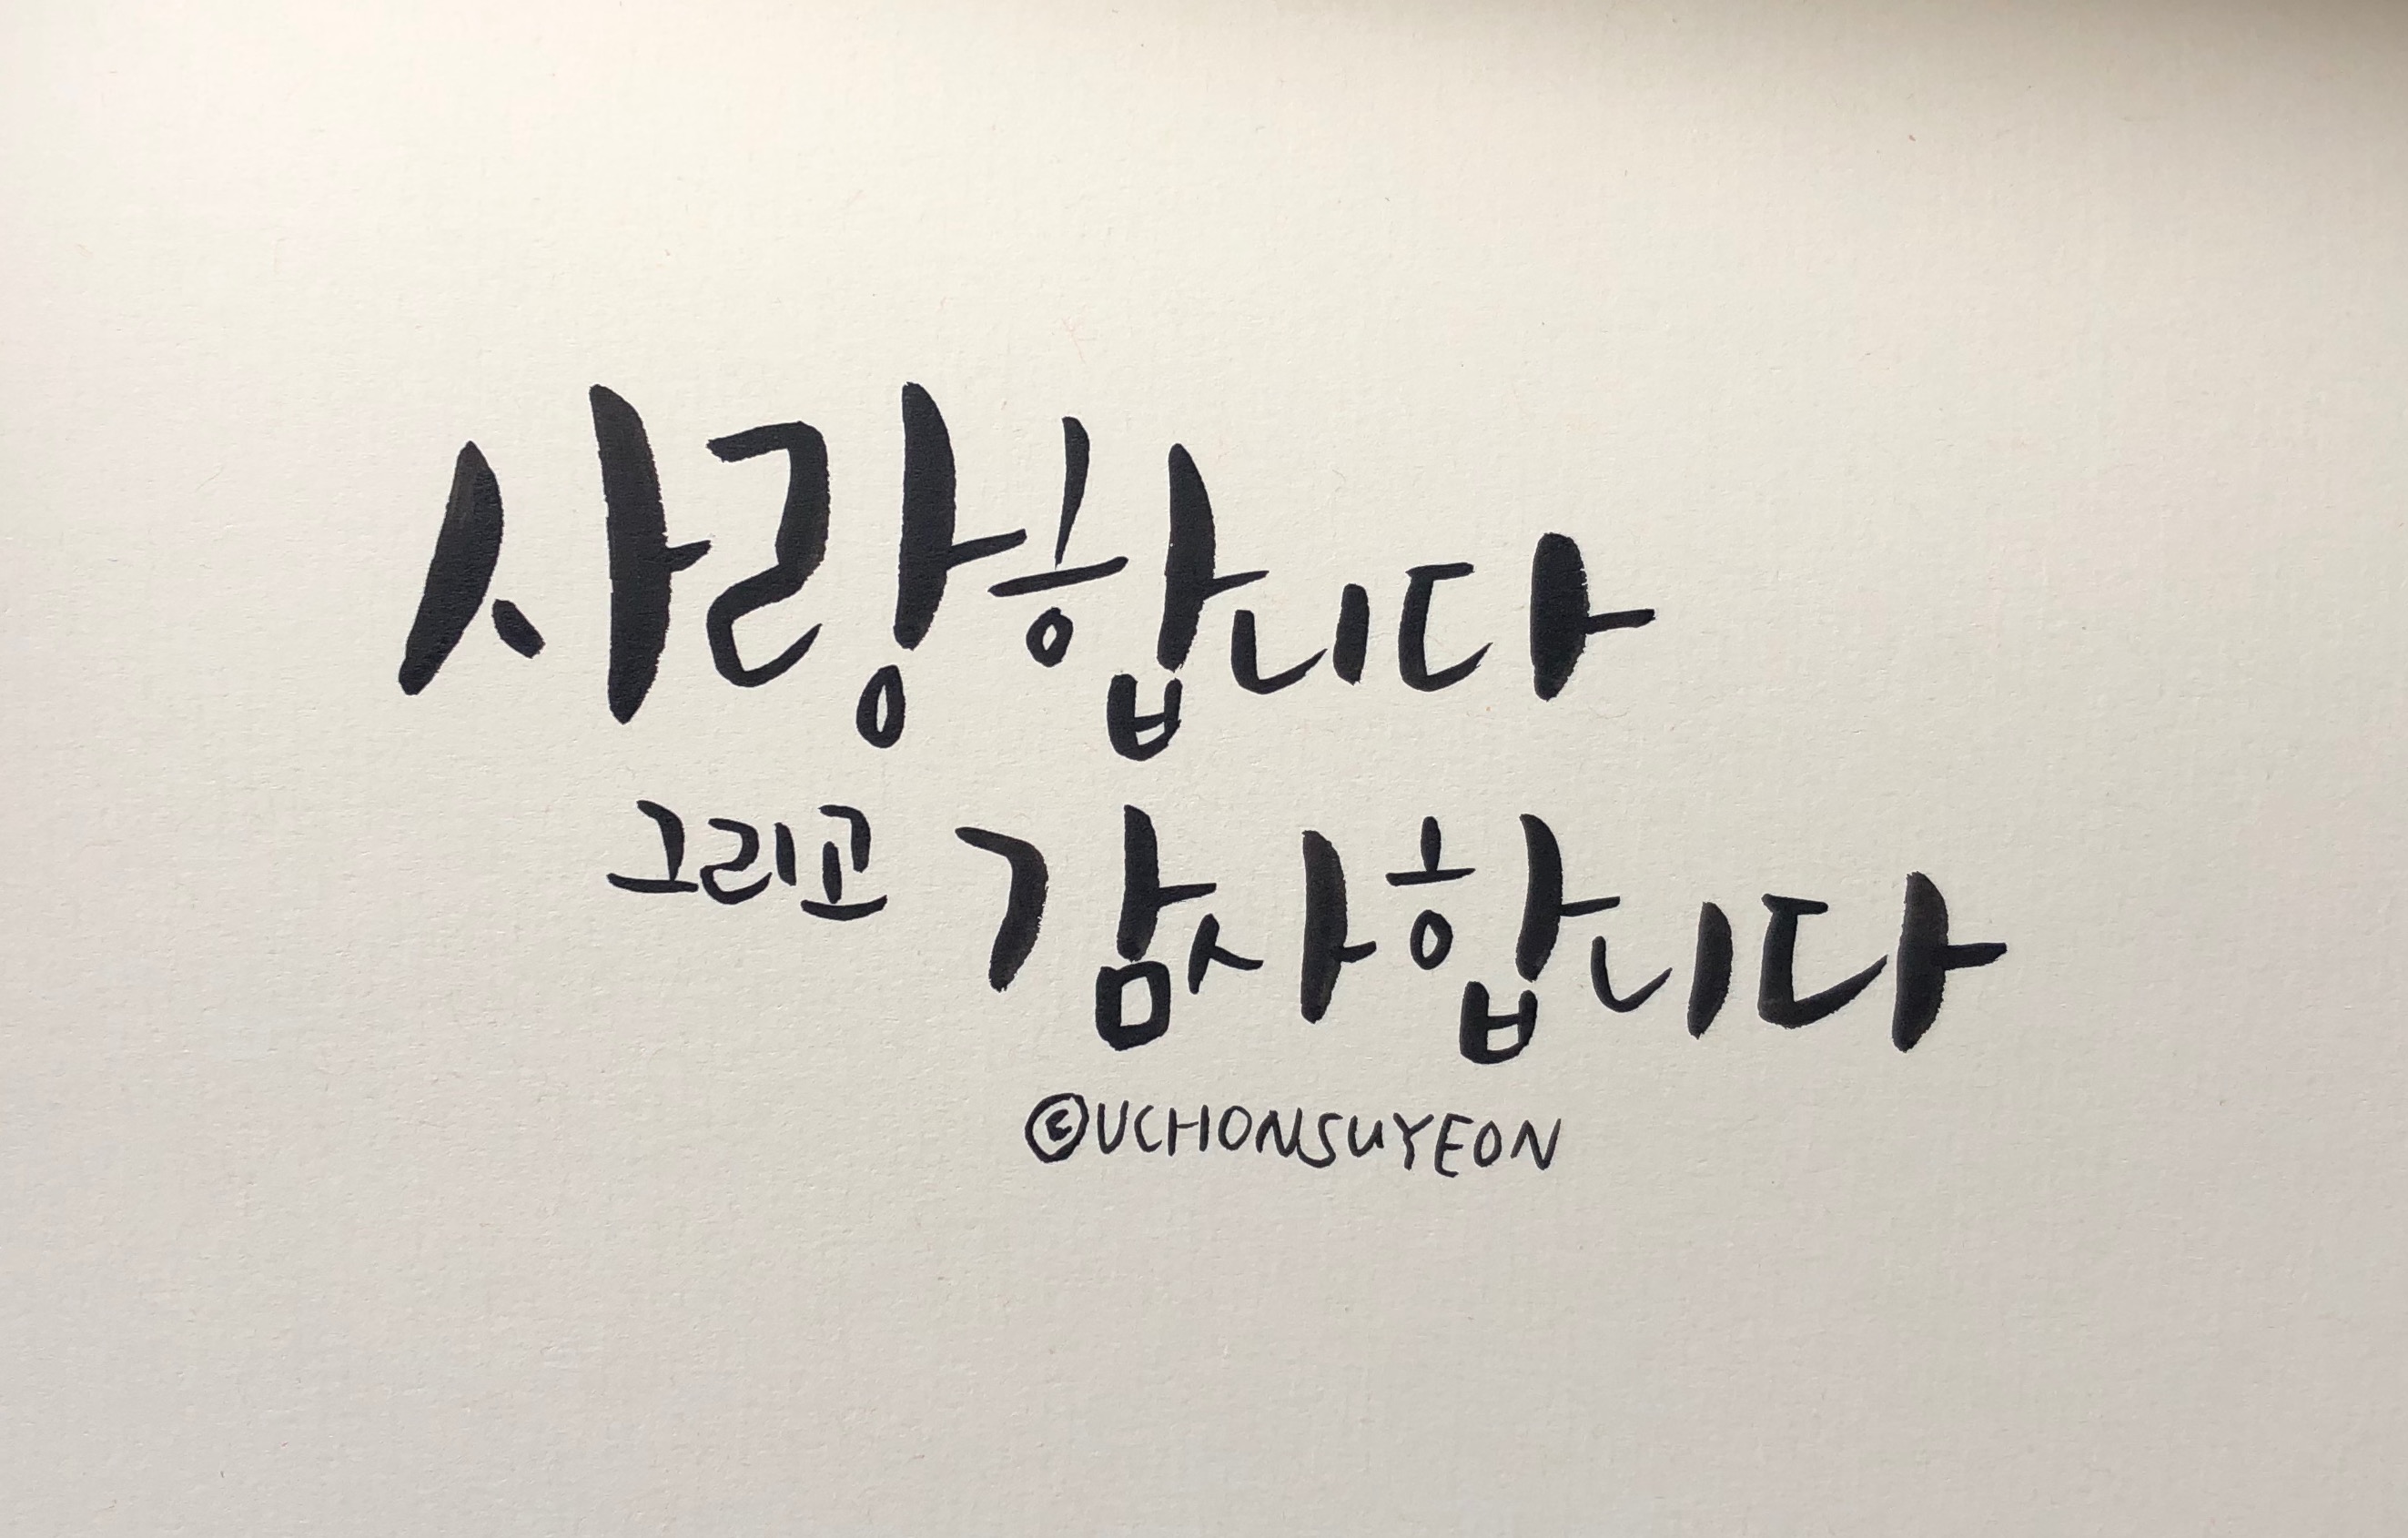 사랑합니다
그리고 감사합니다
©UCHONSUYEON